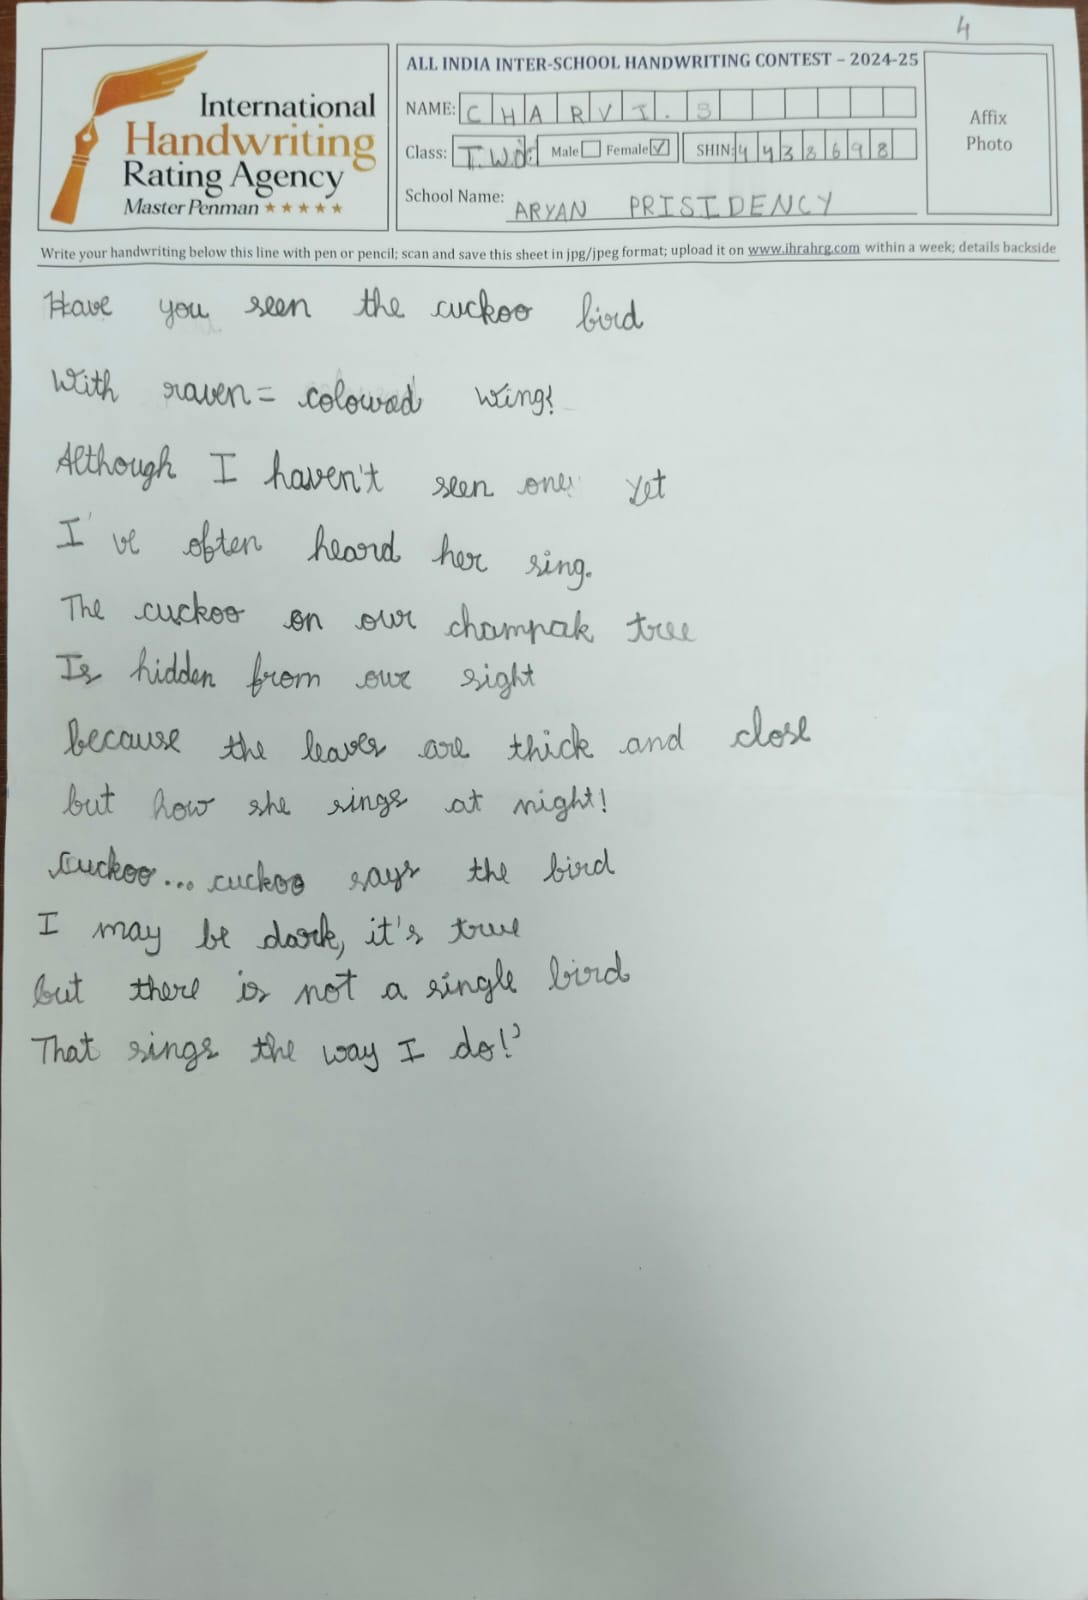 4
International
Handwriting
Rating Agency
Master Penman ★★★★★
ALL INDIA INTER-SCHOOL HANDWRITING CONTEST – 2024-25
NAME: CHARVI. S
Class: T.WO Male Female ✓ SHIN: 4438698
School Name: ARYAN PRISIDENCY
Affix
Photo
Write your handwriting below this line with pen or pencil; scan and save this sheet in jpg/jpeg format; upload it on www.ihrahrg.com within a week; details backside
Have you seen the cuckoo bird
With raven= colowad wing?
Although I haven't seen one yet
I've often heard her sing.
The cuckoo on our champak tree
Is hidden from our sight
because the leaves are thick and close
but how she sings at night!
cuckoo... cuckoo says the bird
I may be dark, it's true
but there is not a single bird
That sings the way I do!'